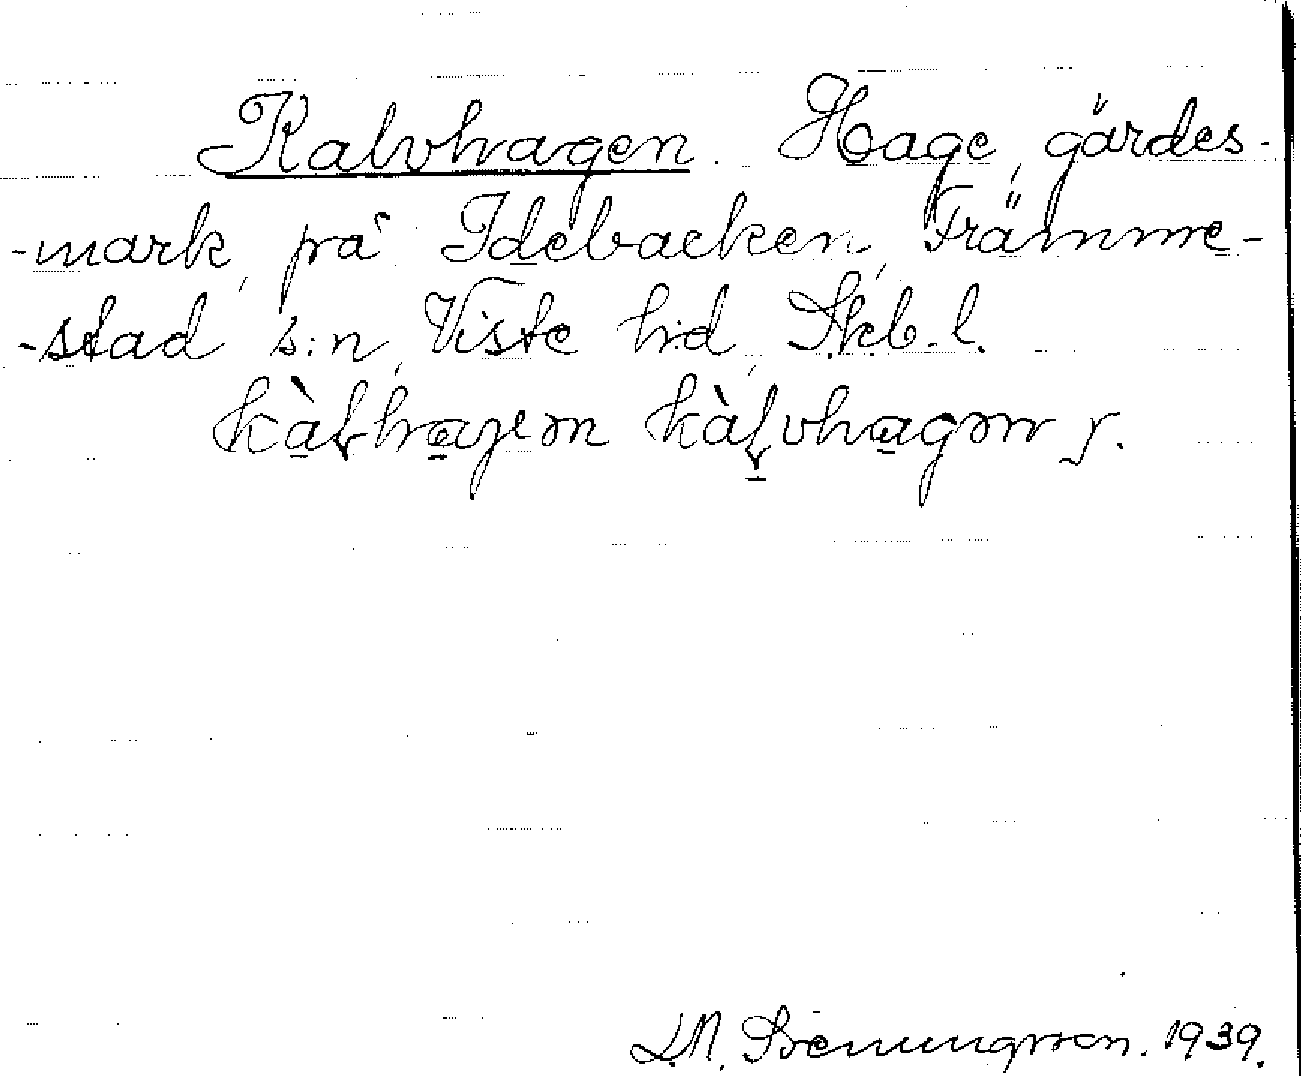 Kalvhagen. Hage, gärdes-
-mark, på Idebacken, Främme-
-stad s:n, Viste hd, Skb. l.
kàlvhagen kàlvhagen s.
1939.